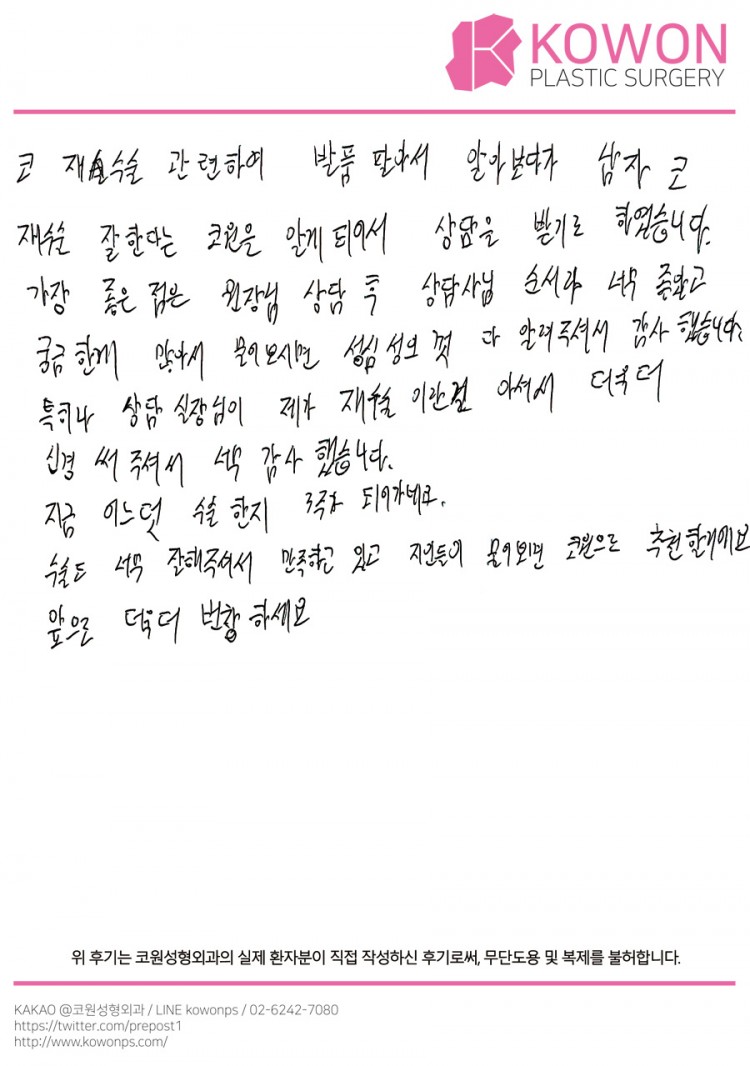 KOWON
PLASTIC SURGERY
코 재수술 관련하여 발품 팔아서 알아보다가 남자 코
재수술 잘한다는 코원을 알게 되어서 상담을 받기로 하였습니다.
가장 좋은 점은 원장님 상담 후 상담사님 순서라 너무 좋았고
궁금한게 많아서 물어보시면 성심성의 껏 다 알려주셔서 감사했습니다.
특히나 상담 실장님이 제가 재수술 이란걸 아셔서 더욱더
신경 써 주셔서 너무 감사 했습니다.
지금 어느덧 수술 한지 3주차 되어가네요.
수술도 너무 잘해주셔서 만족하고 있고 지인들이 물어보면 코원으로 추천할게예요
앞으로 더욱더 번창 하세요
위 후기는 코원성형외과의 실제 환자분이 직접 작성하신 후기로써, 무단도용 및 복제를 불허합니다.
KAKAO @코원성형외과 / LINE kowonps / 02-6242-7080
https://twitter.com/prepost1
http://www.kowonps.com/